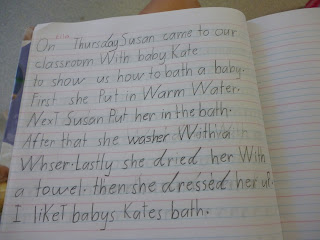 On Thursday Susan came to our
classroom With baby Kate
to show us how to bath a baby.
First she Put in Warm Water.
Next Susan Put her in the bath.
After that she washer With a
Whser. Lastly she dried her With
a towel. then she dressed her up.
I likeT babys Kates bath.